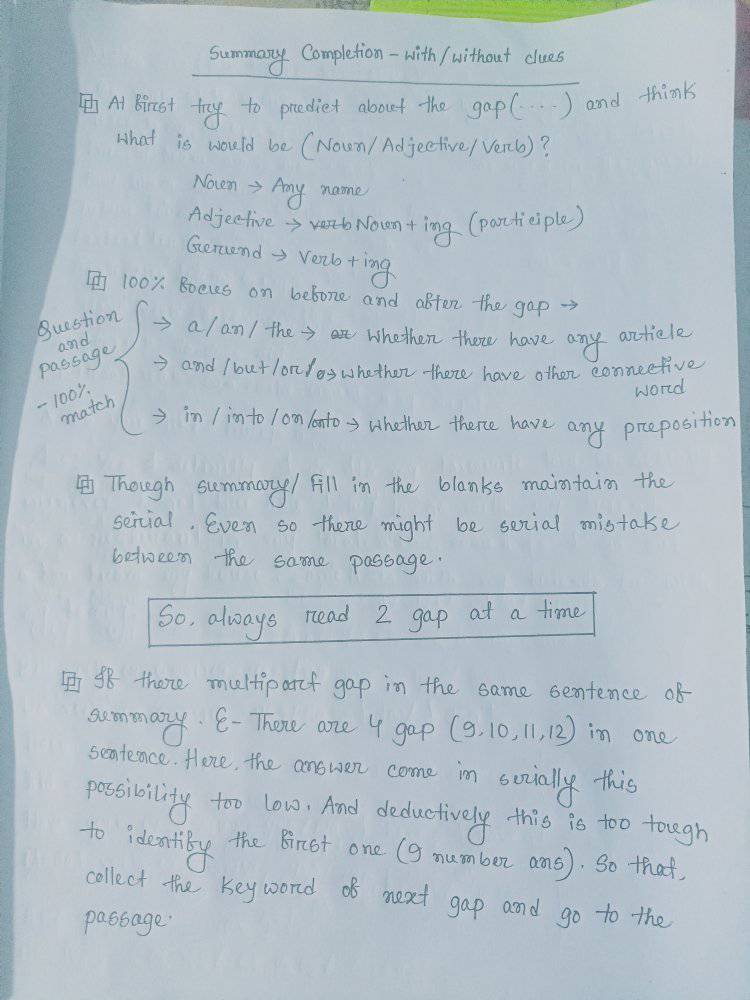 Summary Completion - with/without clues
At first try to predict about the gap(....) and think
what is would be (Noun/Adjective/Verb)?
Noun → Any name
Adjective → verb Noun + ing (participle)
Gerund → Verb + ing
100% focus on before and after the gap →
Question and passage - 100% match
→ a/an/the → or whether there have any article
→ and/but/or/so → whether there have other connective
word
→ in/into/on/onto → whether there have any preposition
Though summary/fill in the blanks maintain the
serial. Even so there might be serial mistake
between the same passage.
So, always read 2 gap at a time
If there multipart gap in the same sentence of
summary. E- There are 4 gap (9,10,11,12) in one
sentence. Here, the answer come in serially this
possibility too low. And deductively this is too tough
to identify the first one (9 number ans). So that,
collect the keyword of next gap and go to the
passage.